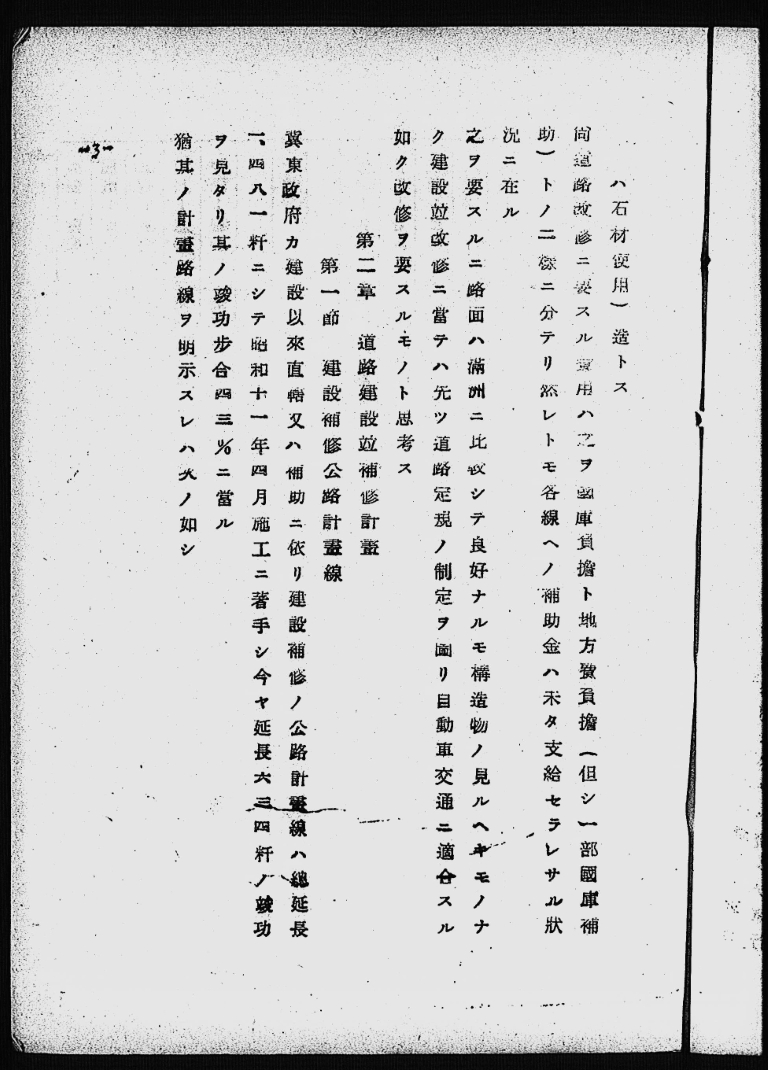 ハ石材使用）造トス
尙道路改修ニ要スル費用ハ之ヲ國庫負擔ト地方費負擔（但シ一部國庫補
助）トノ二樣ニ分テリ然レトモ各線ヘノ補助金ハ未タ支給セラレサル狀
況ニ在ル
之ヲ要スルニ路面ハ滿洲ニ比較シテ良好ナルモ構造物ノ見ルヘキモノナ
ク建設竝改修ニ當テハ先ツ道路定規ノ制定ヲ圖リ自動車交通ニ適合スル
如ク改修ヲ要スルモノト思考ス
第二章　道路建設竝補修計畫
第一節　建設補修公路計畫線
冀東政府カ建設以來直轄又ハ補助ニ依リ建設補修ノ公路計畫線ハ總延長
一、四八一粁ニシテ昭和十一年四月施工ニ著手シ今ヤ延長六三四粁ノ竣功
ヲ見タリ其ノ竣功步合四三％ニ當ル
猶其ノ計畫路線ヲ明示スレハ次ノ如シ
-3-